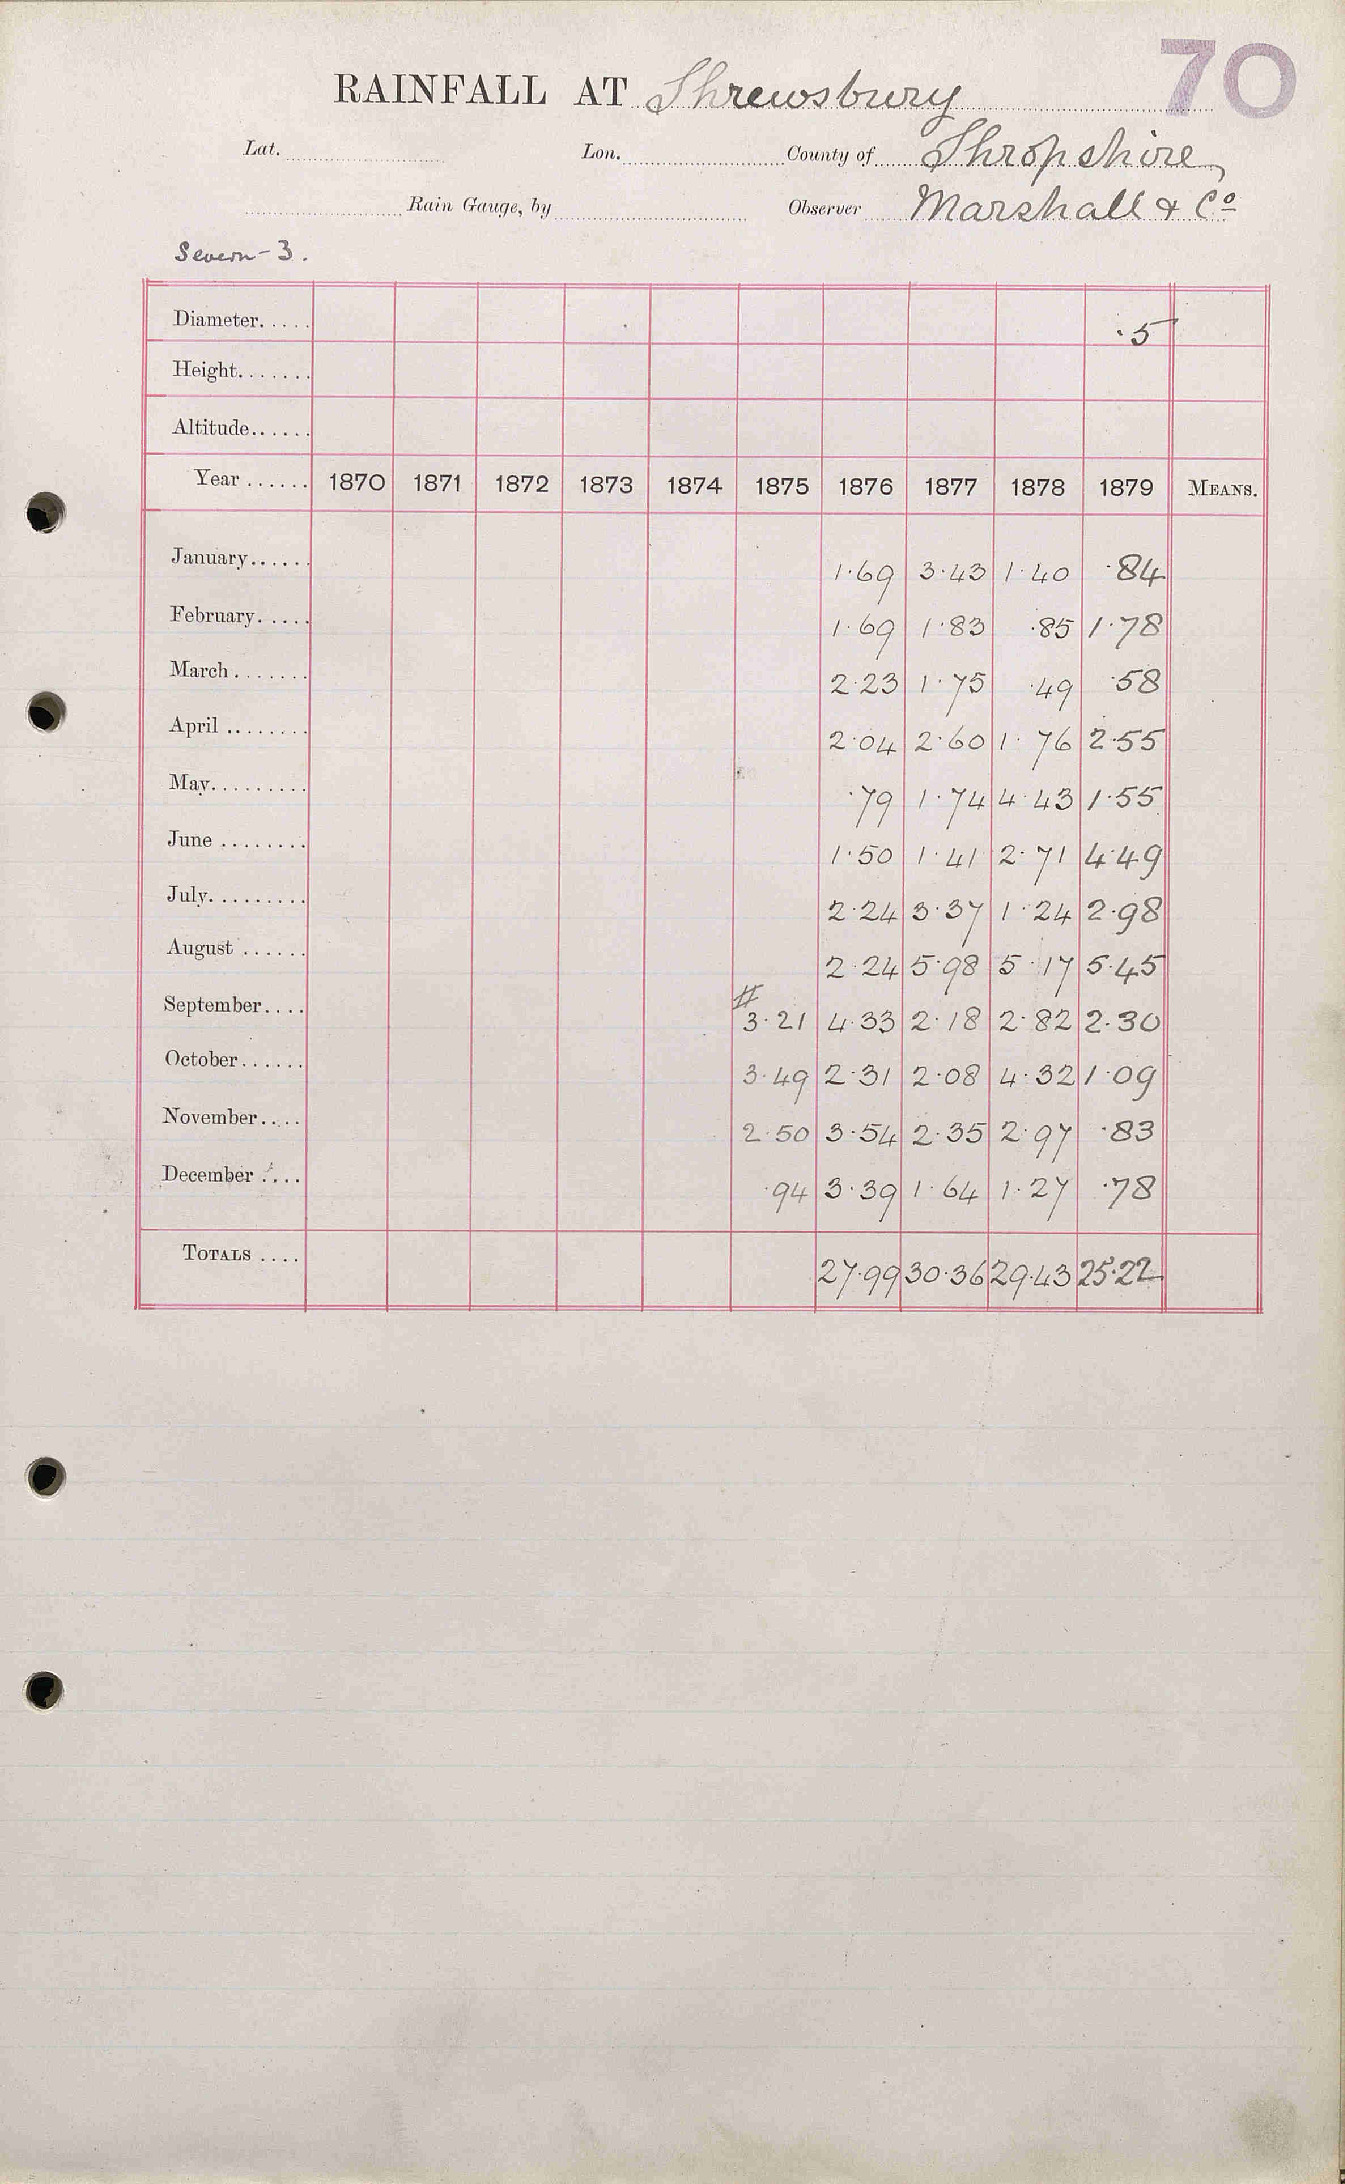 70
RAINFALL AT Shrewsbury
Lat. Lon. County of Shropshire
Rain Gauge, by Observer Marshall & Co
Severn - 3.
Diameter ..... ·5
Height.......
Altitude......
Year ...... 1870 1871 1872 1873 1874 1875 1876 1877 1878 1879 MEANS.
January...... 1·69 3·43 1·40 ·84
February..... 1·69 1·83 ·85 1·78
March ....... 2·23 1·75 ·49 ·58
April ........ 2·04 2·60 1·76 2·55
May......... ·79 1·74 4·43 1·55
June ........ 1·50 1·41 2·71 4·49
July......... 2·24 3·37 1·24 2·98
August ...... 2·24 5·98 5·17 5·45
September.... # 3·21 4·33 2·18 2·82 2·30
October...... 3·49 2·31 2·08 4·32 1·09
November..... 2·50 3·54 2·35 2·97 ·83
December .... ·94 3·39 1·64 1·27 ·78
TOTALS .... 27·99 30·36 29·43 25·22